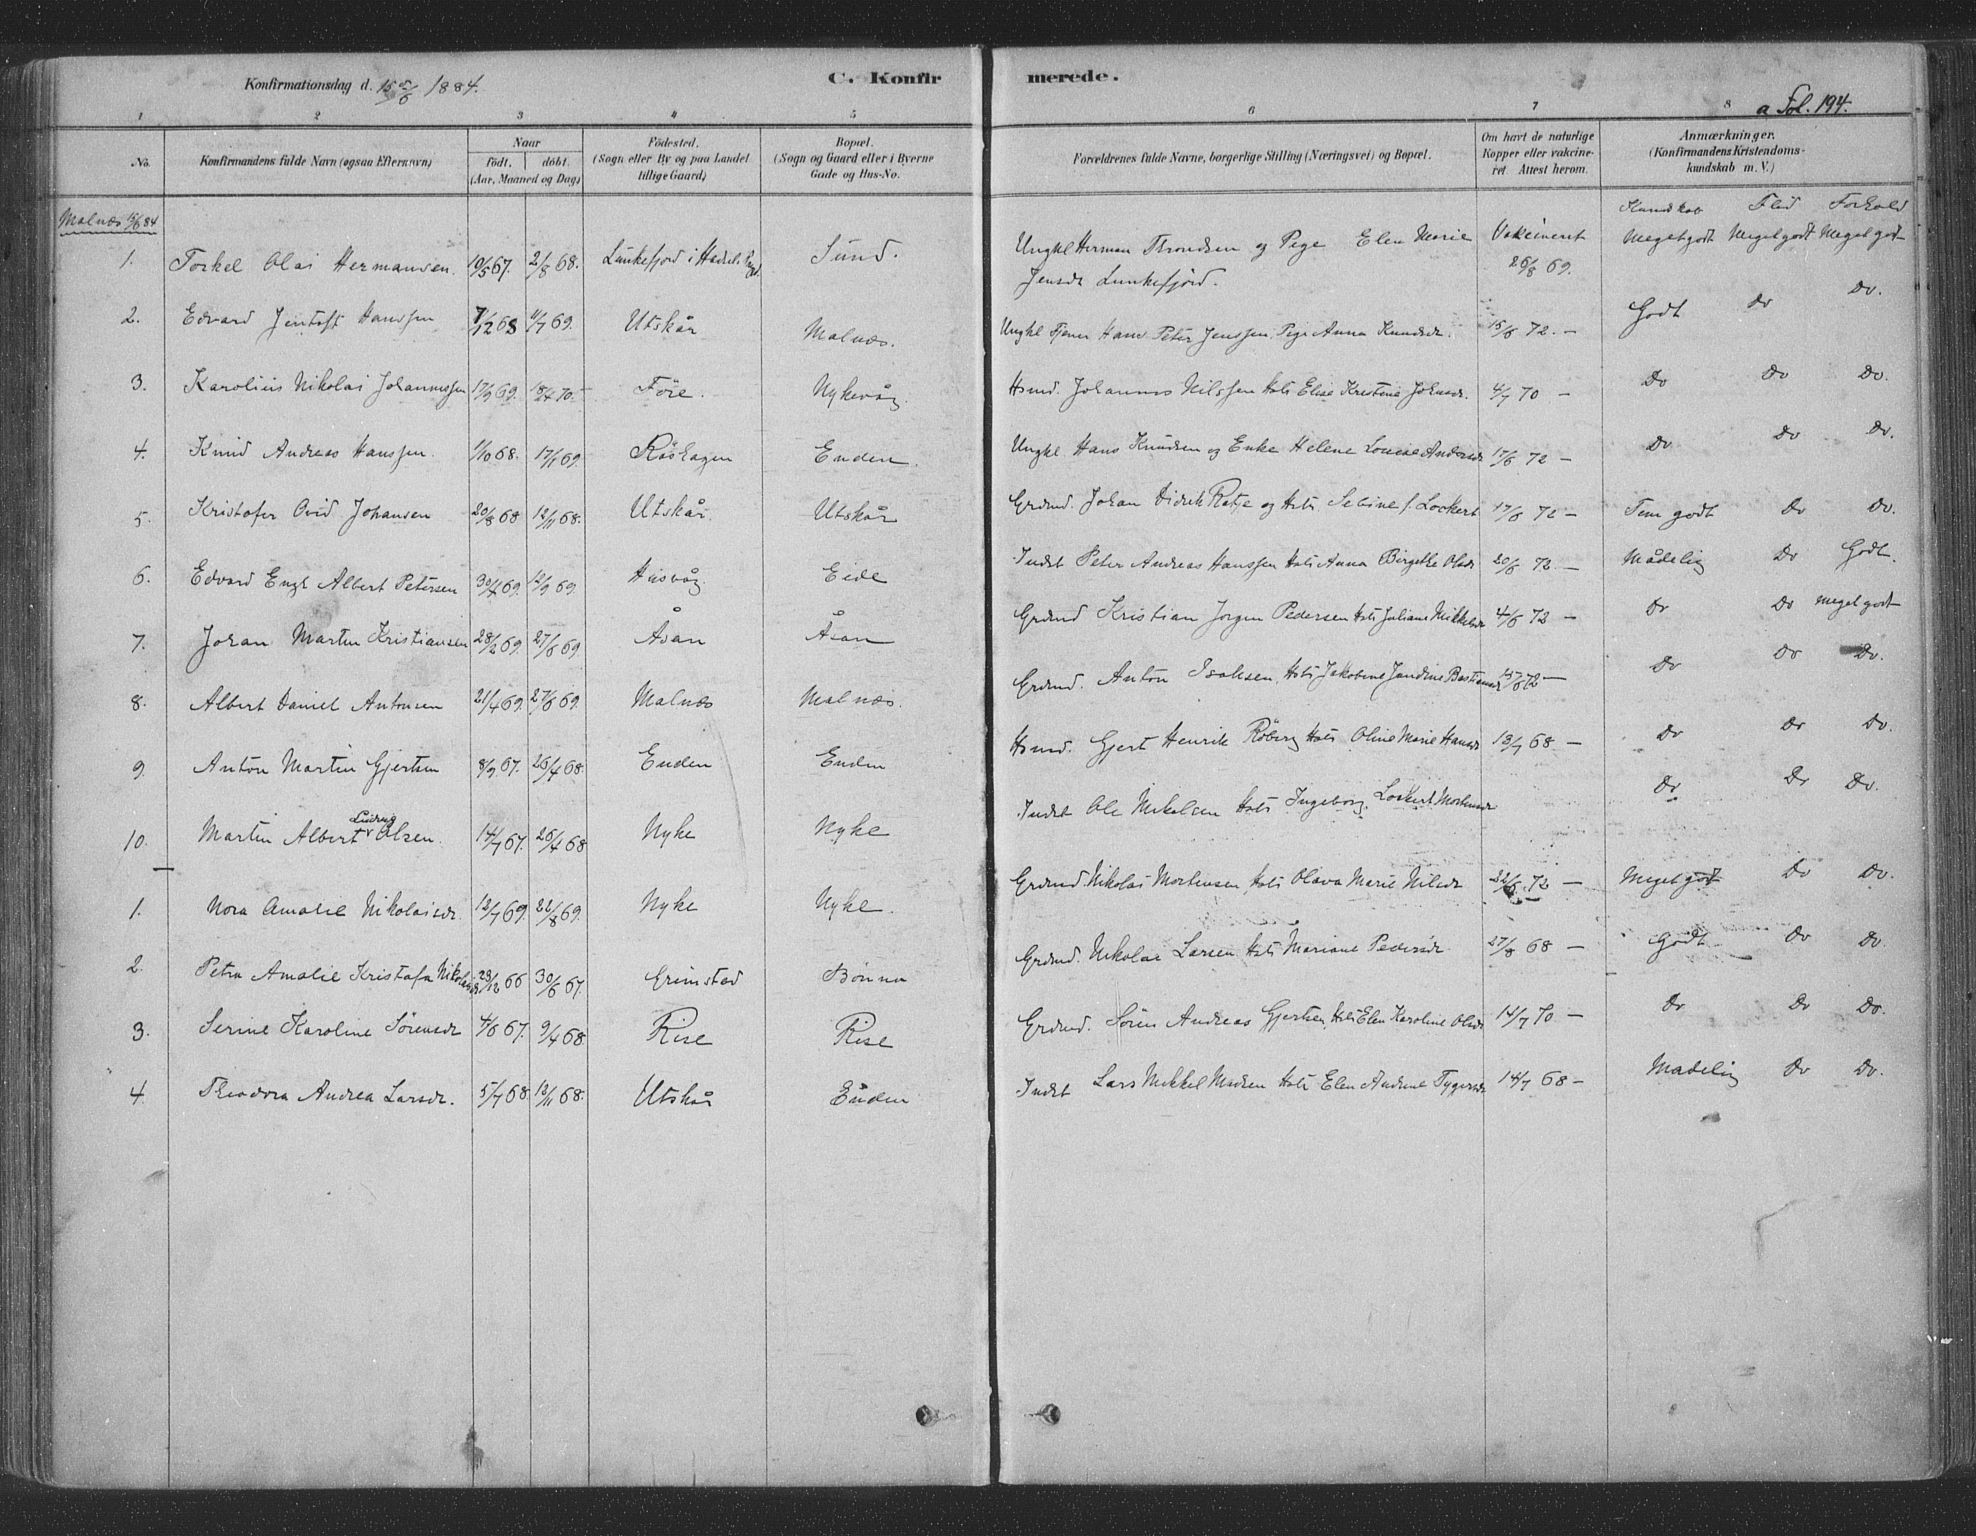 Konfirmationsdag d. 15 5/6 1884.
C. Konfir merede.
a Fol. 194.
1 2 3 4 5 6 7 8
No.
Konfirmandens fulde Navn (ogsaa Efternavn)
Naar
födt, döbt.
(Aar, Maaned og Dag)
Födested.
(Sogn eller By og paa Landet
tillige Gaard)
Bopæl.
(Sogn og Gaard eller i Byerne
Gade og Hus-No.
Forældrenes fulde Navne, borgerlige Stilling (Næringsvei) og Bopæl.
Om havt de naturlige
Kopper eller vakcine-
ret. Attest herom.
Anmærkninger.
(Konfirmandens Kristendoms-
kundskab m. V.)
Malnæs 15/6 84
Kundskab Flid Forhold
1. Torkel Olai Hermansen. 10/5 67. 2/8 68. Lunkefjord i Hadsel Sund. Ungkl Herman Throndsen og Pige Elen Marie Vakcineret Meget godt Meget godt Meget godt
Jensdr Lunkefjord. 26/8 69.
2. Edvard Jentoft Hanssen 7/12 68 11/7 69. Utskår Malnæs. Ungkl Tjener Hans Peter Jenssen. Pige Anna Knudsdr. 15/6 72. — Godt Do Do.
3. Karolius Nikolai Johannessen 17/9 69. 18/4 70. Före. Nykevåg Hsmd. Johannes Nilssen Hsts Elise Kristine Johnsdr. 4/7 70 — Do Do Do.
4. Knud Andreas Hanssen. 1/10 68. 17/1 69. Röskagen Enden. Ungkl. Hans Knudsen og Enke Helene Lovise Andersdr 17/6 72 — Do Do Do.
5. Kristofer Ovid Johansen 20/8 68 12/11 68. Utskår. Utskår Grdmd. Johan Didrik Ratje og Hsts Sebine f. Lockert 17/6 72 — Tem godt Do Do.
6. Edvard Engl Albert Petersen 30/4 69. 12/9 69. Husvåg Eide Indst Peter Andreas Hanssen Hsts Anna Birgitte Olsdr 20/6 72. — Mådelig Do Godt.
7. Johan Martin Kristiansen 28/2 69. 27/6 69 Åsan Åsan Grdmd Kristian Jörgen Pedersen Hsts Juliane Mikkelsdr 4/6 72 — Do Do meget godt
8. Albert Daniel Antonsen 21/4 69. 27/6 69. Malnæs Malnæs. Grdmd. Anton Isaksen, Hsts Jakobine Jendine Bastiansdr 15/6 72 — Do Do Do.
9. Anton Martin Gjertsen 8/9 67. 26/4 68. Enden Enden Hsmd. Gjert Henrik Röberg Hsts Oline Marie Hansdr 13/7 68. — Do Do Do.
10. Martin Albert Ludvig Olsen. 14/7 67. 26/4 68 Nyke Nyke Indst Ole Mikelsen Hsts Ingeborg Lockert Mortensdr Do Do Do.
1. Nora Amalie Nikolaisdr. 12/7 69. 22/8 69. Nyke Nyke. Grdmd. Nikolai Mortensen, Hsts Olava Marie Nilsdr 22/6 72 — Meget godt Do Do.
2. Petra Amalie Kristofa Nikolaisdr 29/12 66 30/6 67. Grimstad Bönna Grdmd. Nikolai Larsen Hsts Mariane Pedersdr 27/8 68 — Godt Do Do.
3. Serine Karoline Sörensdr 4/6 67. 9/4 68. Rise Rise Grdmd. Sören Andreas Gjertsen, Hsts Elen Karoline Olsdr 14/7 70 — Do Do Do.
4. Theodora Andrea Larsdr. 5/7 68. 13/11 68. Utskår Enden Indst Lars Mikkel Madsen Hsts Elen Andrine Tygersdr 14/7 68 — Madelig Do Do.